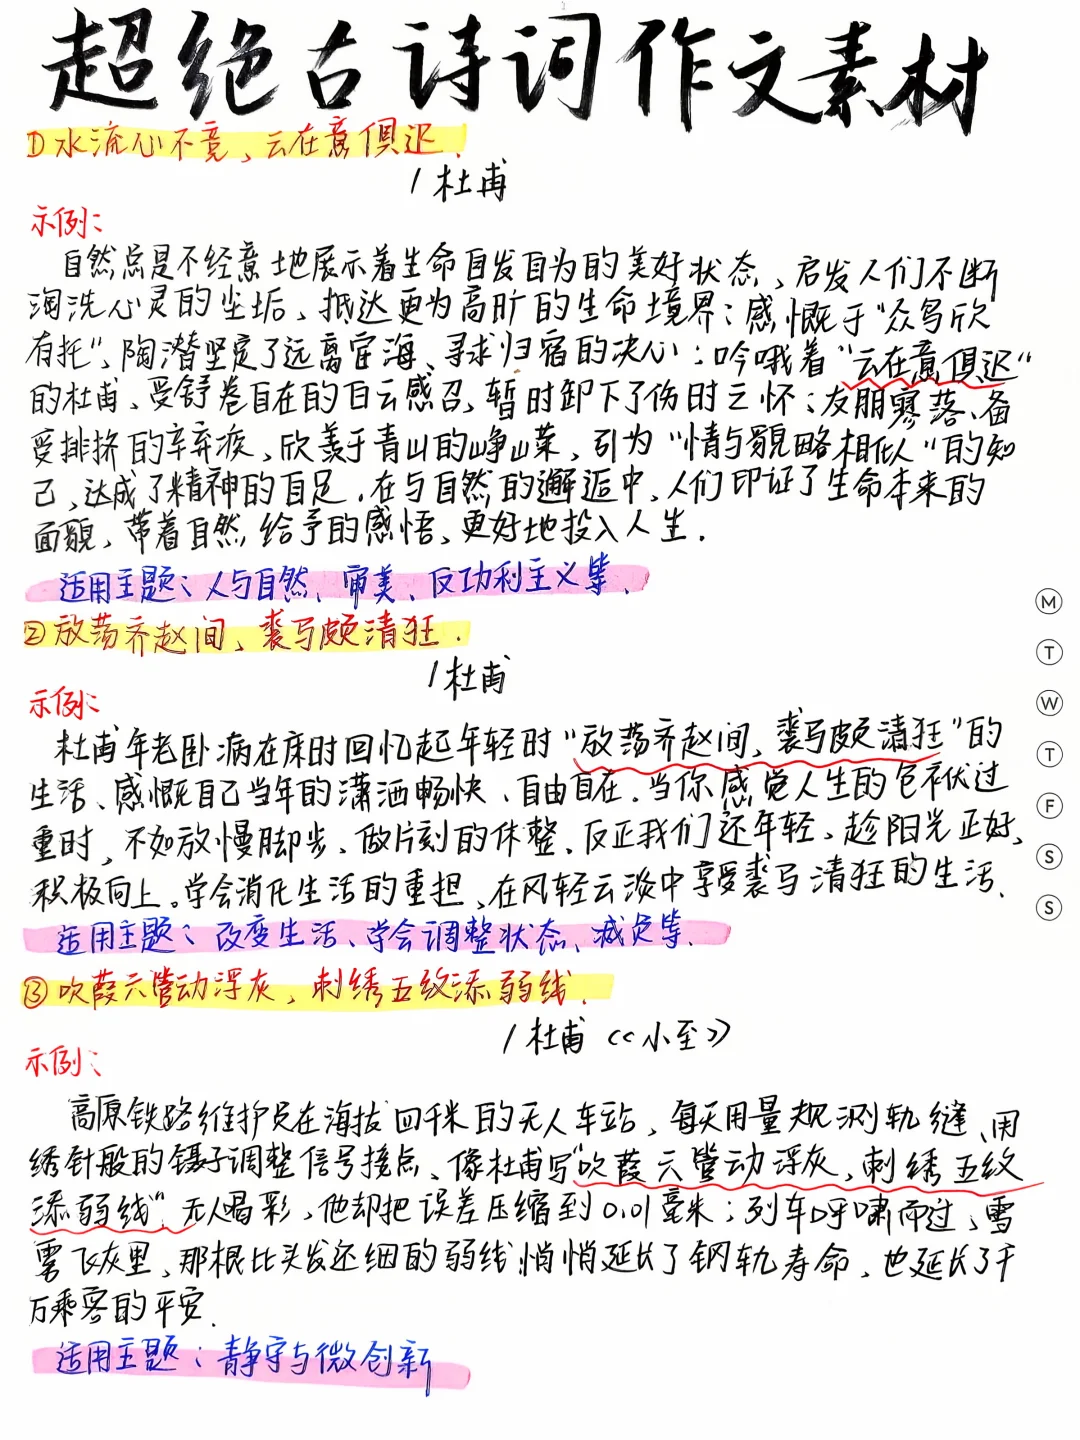 超绝古诗词作文素材
①水流心不竞,云在意俱迟.
/杜甫
示例:
自然总是不经意地展示着生命自发自为的美好状态,启发人们不断
淘洗心灵的尘垢,抵达更为高旷的生命境界:感慨于“众鸟欣
有托”,陶潜坚定了远离宦海、寻求归宿的决心;吟哦着“云在意俱迟”
的杜甫,受舒卷自在的白云感召,暂时卸下了伤时之怀;友朋寥落、备
受排挤的辛弃疾,欣羡于青山的峥嵘,引为“情与貌略相似”的知
己,达成了精神的自足.在与自然的邂逅中,人们印证了生命本来的
面貌,带着自然给予的感悟,更好地投入人生.
适用主题:人与自然、审美、反功利主义等.
②放荡齐赵间,裘马颇清狂.
/杜甫
示例:
杜甫年老卧病在床时回忆起年轻时“放荡齐赵间,裘马颇清狂”的
生活、感慨自己当年的潇洒畅快、自由自在.当你感觉人生的包袱过
重时,不如放慢脚步、做片刻的休整、反正我们还年轻、趁阳光正好,
积极向上。学会消化生活的重担,在风轻云淡中享受裘马清狂的生活.
适用主题:改变生活、学会调整状态、减负等.
③吹葭六管动浮灰,刺绣五纹添弱线.
/杜甫《小至》
示例:
高原铁路维护员在海拔四千米的无人车站,每天用量规测轨缝、用
绣针般的镊子调整信号接点、像杜甫写“吹葭六管动浮灰,刺绣五纹
添弱线”.无人喝彩,他却把误差压缩到0.01毫米;列车呼啸而过,雪
雾飞灰里,那根比头发还细的弱线悄悄延长了钢轨寿命,也延长了千
万乘客的平安.
适用主题:静守与微创新
M
T
W
T
F
S
S